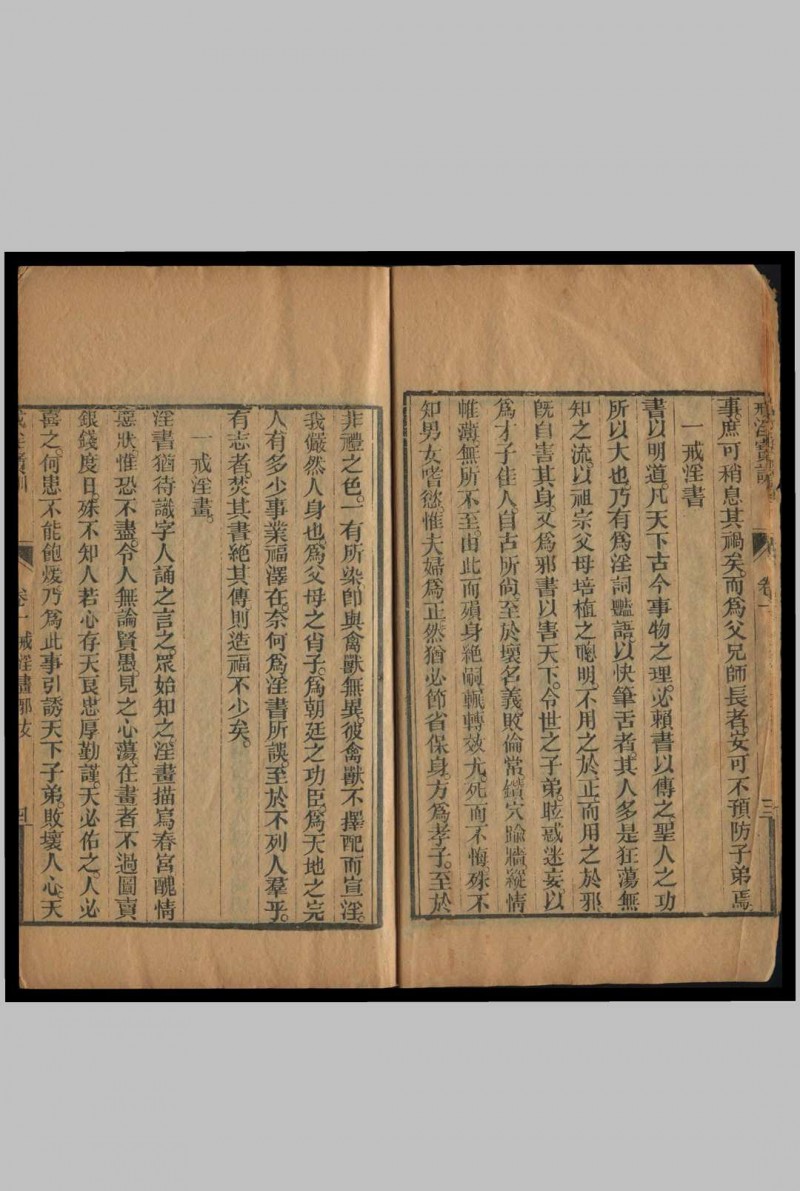 戒淫寶訓
卷一
三
事庶可稍息其禍矣而爲父兄師長者安可不預防子弟焉
一戒淫書
書以明道凡天下古今事物之理必賴書以傳之聖人之功
所以大也乃有爲淫詞豔語以快筆舌者其人多是狂蕩無
知之流以祖宗父母培植之聰明不用之於正而用之於邪
旣自害其身又爲邪書以害天下令世之子弟眩惑迷妄以
爲才子佳人自古所尙至於壞名義敗倫常鑽穴踰牆縱情
帷薄無所不至由此而殞身絶嗣輒轉效尤死而不悔殊不
知男女嗜慾惟夫婦爲正然猶必節省保身方爲孝子至於
非禮之色一有所染卽與禽獸無異彼禽獸不擇配而宣淫
我儼然人身也爲父母之肖子爲朝廷之功臣爲天地之完
人有多少事業福澤在奈何爲淫書所誤至於不列人羣乎
有志者焚其書絶其傳則造福不少矣
一戒淫畫
淫書猶待識字人誦之言之衆始知之淫畫描寫春宮醜情
惡狀惟恐不盡令人無論賢愚見之心蕩在畫者不過圖賣
銀錢度日殊不知人若心存天良忠厚勤謹天必佑之人必
喜之何患不能飽煖乃爲此事引誘天下子弟敗壞人心天
戒淫寶訓
卷一戒淫畫邪友
四